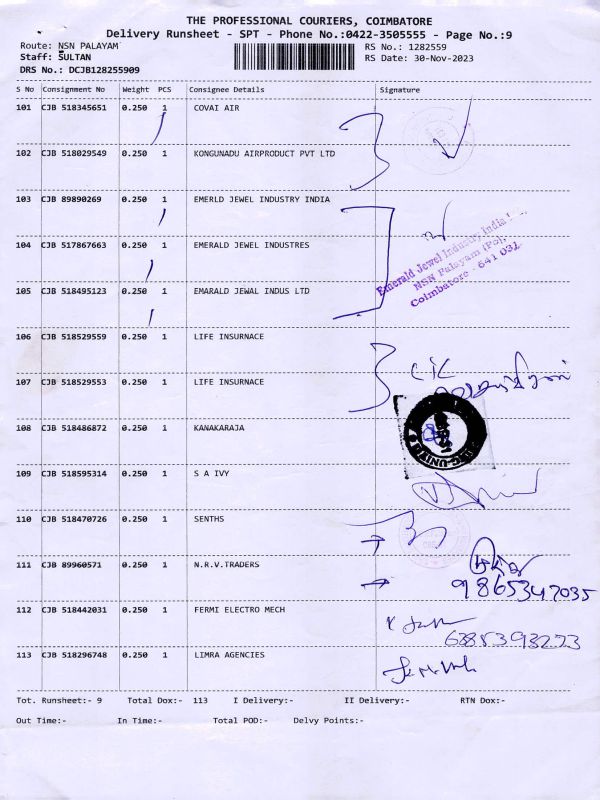 THE PROFESSIONAL COURIERS, COIMBATORE
Delivery Runsheet - SPT - Phone No.:0422-3505555 - Page No.:9
Route: NSN PALAYAM
RS No.: 1282559
Staff: SULTAN
RS Date: 30-Nov-2023
DRS No.: DCJB128255909
S No Consignment No Weight PCS Consignee Details Signature
101 CJB 518345651 0.250 1 COVAI AIR
102 CJB 518029549 0.250 1 KONGUNADU AIRPRODUCT PVT LTD
103 CJB 89890269 0.250 1 EMERLD JEWEL INDUSTRY INDIA
104 CJB 517867663 0.250 1 EMERALD JEWEL INDUSTRES
Emerald Jewel Industry India
NSN Palayam (Po),
Coimbatore - 641 031.
105 CJB 518495123 0.250 1 EMARALD JEWAL INDUS LTD
106 CJB 518529559 0.250 1 LIFE INSURNACE
107 CJB 518529553 0.250 1 LIFE INSURNACE
108 CJB 518486872 0.250 1 KANAKARAJA
109 CJB 518595314 0.250 1 S A IVY
110 CJB 518470726 0.250 1 SENTHS
111 CJB 89960571 0.250 1 N.R.V.TRADERS
9865347035
112 CJB 518442031 0.250 1 FERMI ELECTRO MECH
6385393223
113 CJB 518296748 0.250 1 LIMRA AGENCIES
Tot. Runsheet:- 9 Total Dox:- 113 I Delivery:- II Delivery:- RTN Dox:-
Out Time:- In Time:- Total POD:- Delvy Points:-